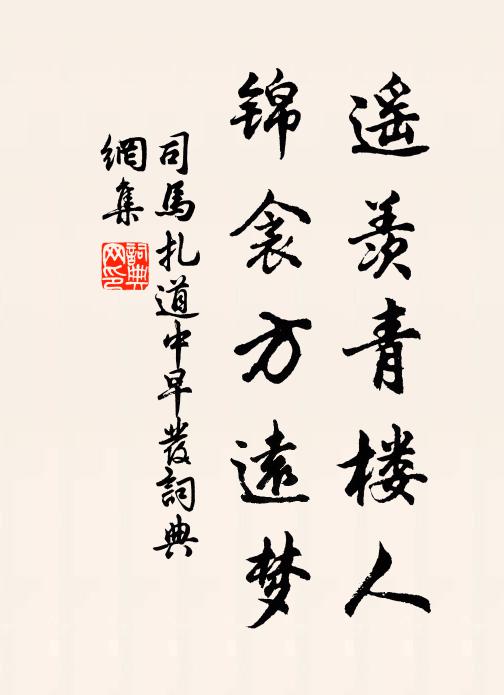 遥羡青楼人
锦衾方远梦
司馬扎道中早發詞典
網集
詞典网印